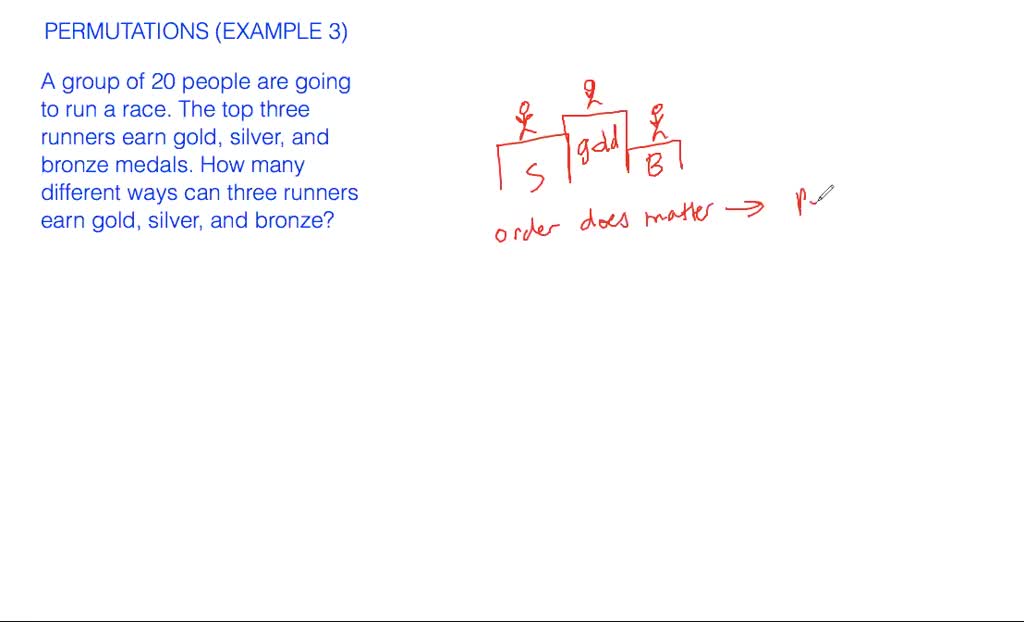 PERMUTATIONS (EXAMPLE 3)
A group of 20 people are going
to run a race. The top three
runners earn gold, silver, and
bronze medals. How many
different ways can three runners
earn gold, silver, and bronze?
S gold B
order does matter → P